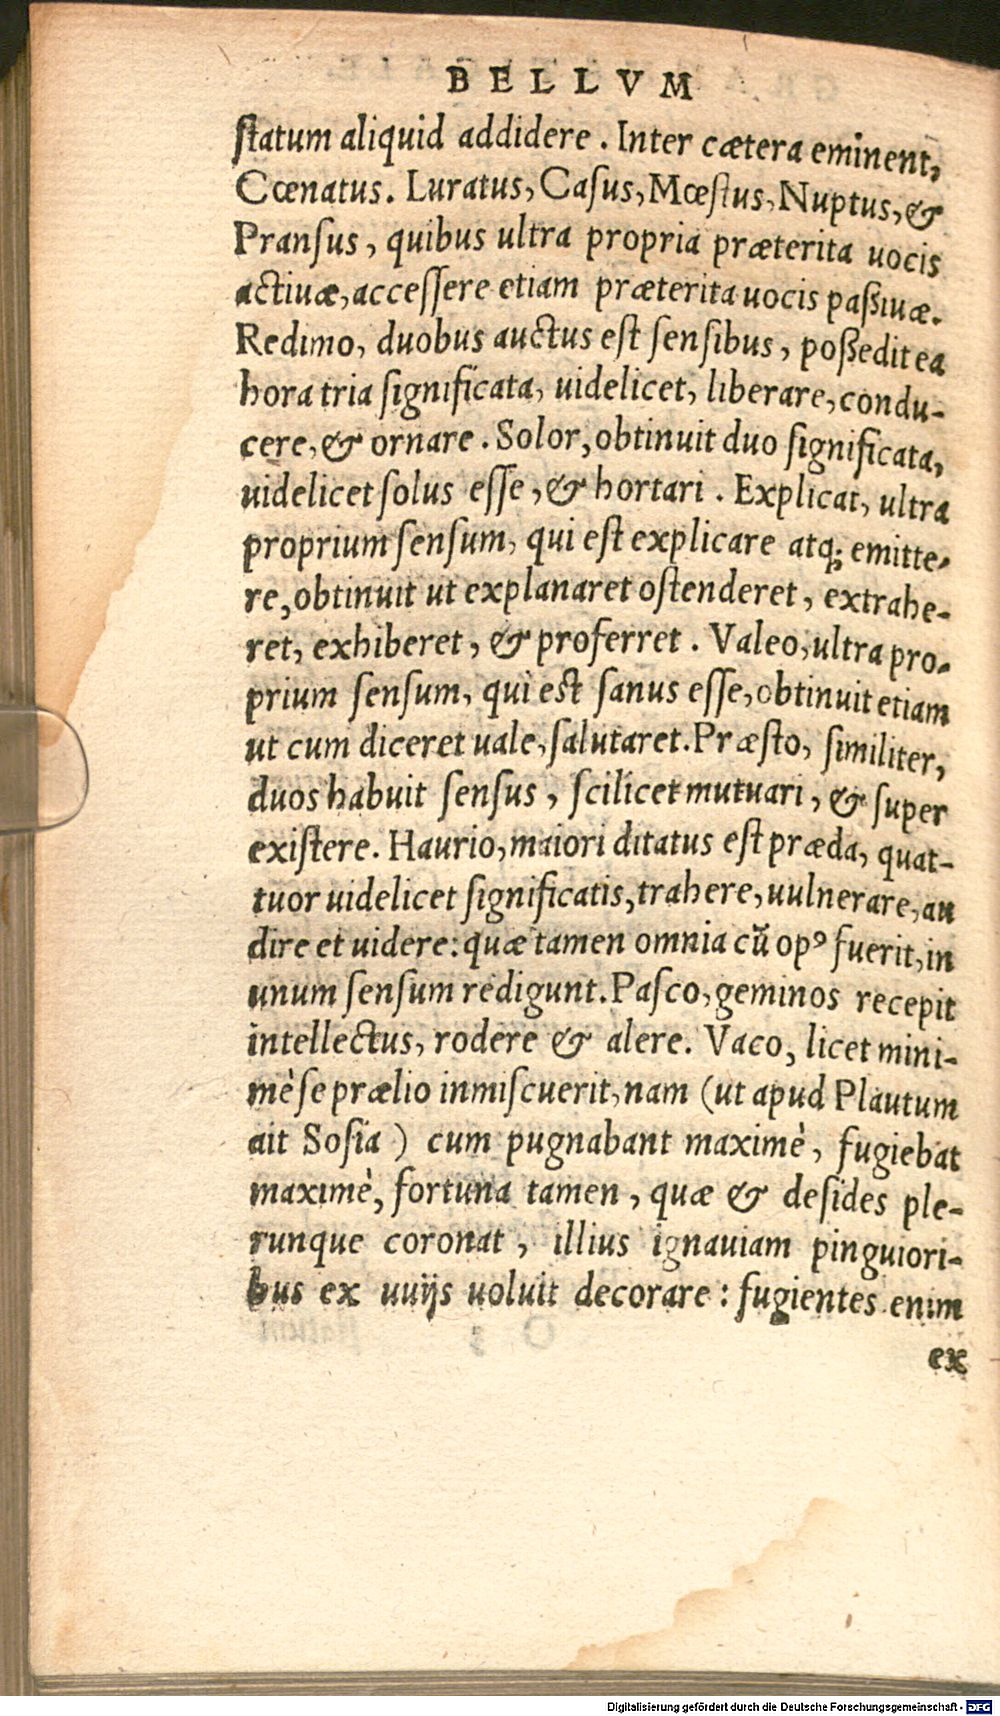 BELLVM
ſtatum aliquid addidere. Inter cætera eminent,
Cœnatus. Luratus, Caſus, Mœſtus, Nuptus, &
Pranſus, quibus ultra propria præterita uocis
actiuæ, acceſſere etiam præterita uocis paßiuæ.
Redimo, duobus auctus eſt ſenſibus, poßedit ea
hora tria ſignificata, uidelicet, liberare, condu-
cere, & ornare. Solor, obtinuit duo ſignificata,
uidelicet ſolus eſſe, & hortari. Explicat, ultra
proprium ſenſum, qui eſt explicare atq; emitte-
re, obtinuit ut explanaret oſtenderet, extrahe-
ret, exhiberet, & proferret. Valeo, ultra pro-
prium ſenſum, qui eſt ſanus eſſe, obtinuit etiam
ut cum diceret uale, ſalutaret. Præſto, ſimiliter,
duos habuit ſenſus, ſcilicet mutuari, & ſuper
exiſtere. Haurio, maiori ditatus eſt præda, quat-
tuor uidelicet ſignificatis, trahere, uulnerare, au
dire et uidere: quæ tamen omnia cū opꝰ fuerit, in
unum ſenſum redigunt. Paſco, geminos recepit
intellectus, rodere & alere. Vaco, licet mini-
mè ſe prælio inmiſcuerit, nam (ut apud Plautum
ait Soſia) cum pugnabant maximè, fugiebat
maximè, fortuna tamen, quæ & deſides ple-
runque coronat, illius ignauiam pinguiori-
bus ex uuijs uoluit decorare: fugientes enim
ex
Digitalisierung gefördert durch die Deutsche Forschungsgemeinschaft - DFG